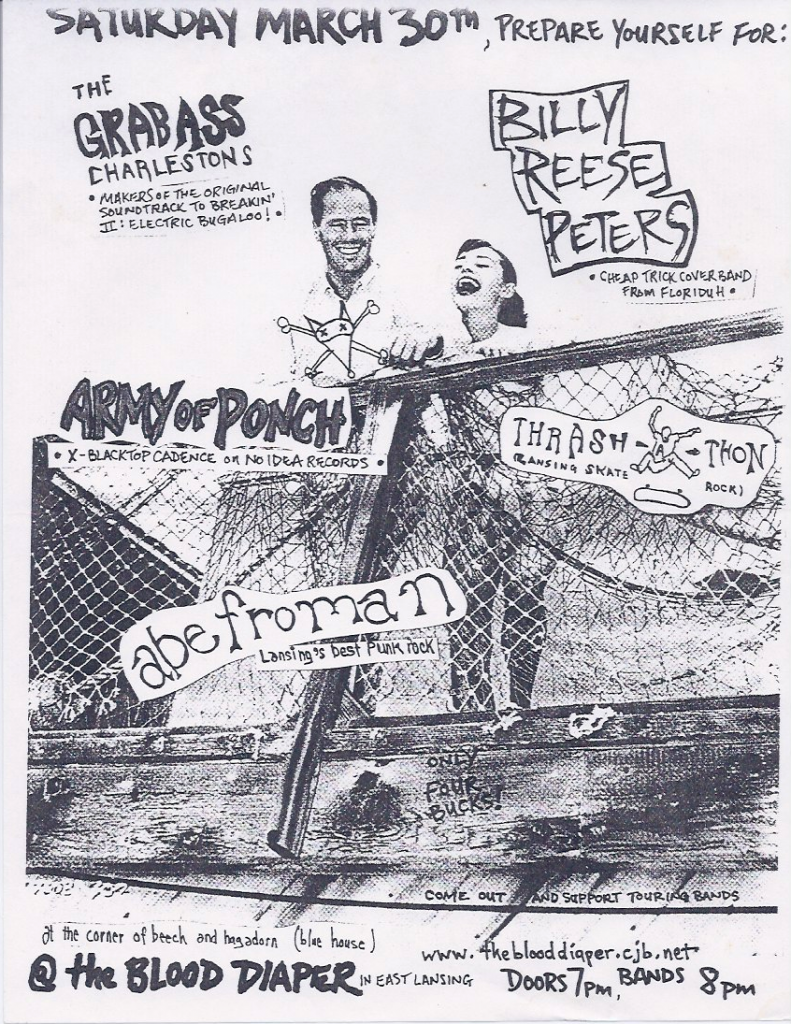 SATURDAY MARCH 30TH, PREPARE YOURSELF FOR:
THE
GRABASS
CHARLESTONS
• MAKERS OF THE ORIGINAL
SOUNDTRACK TO BREAKIN'
II: ELECTRIC BUGALOO! •
BILLY
REESE
PETERS
• CHEAP TRICK COVER BAND
FROM FLORIDUH •
ARMY OF PONCH
• X-BLACKTOP CADENCE ON NO IDEA RECORDS •
THRASH-A-THON
(LANSING SKATE ROCK)
abe froman
Lansing's best Punk rock
ONLY
FOUR
BUCKS!
COME OUT AND SUPPORT TOURING BANDS
at the corner of beech and hagadorn (blue house)
@ the BLOOD DIAPER IN EAST LANSING
www.theblooddiaper.cjb.net
DOORS 7pm, BANDS 8pm